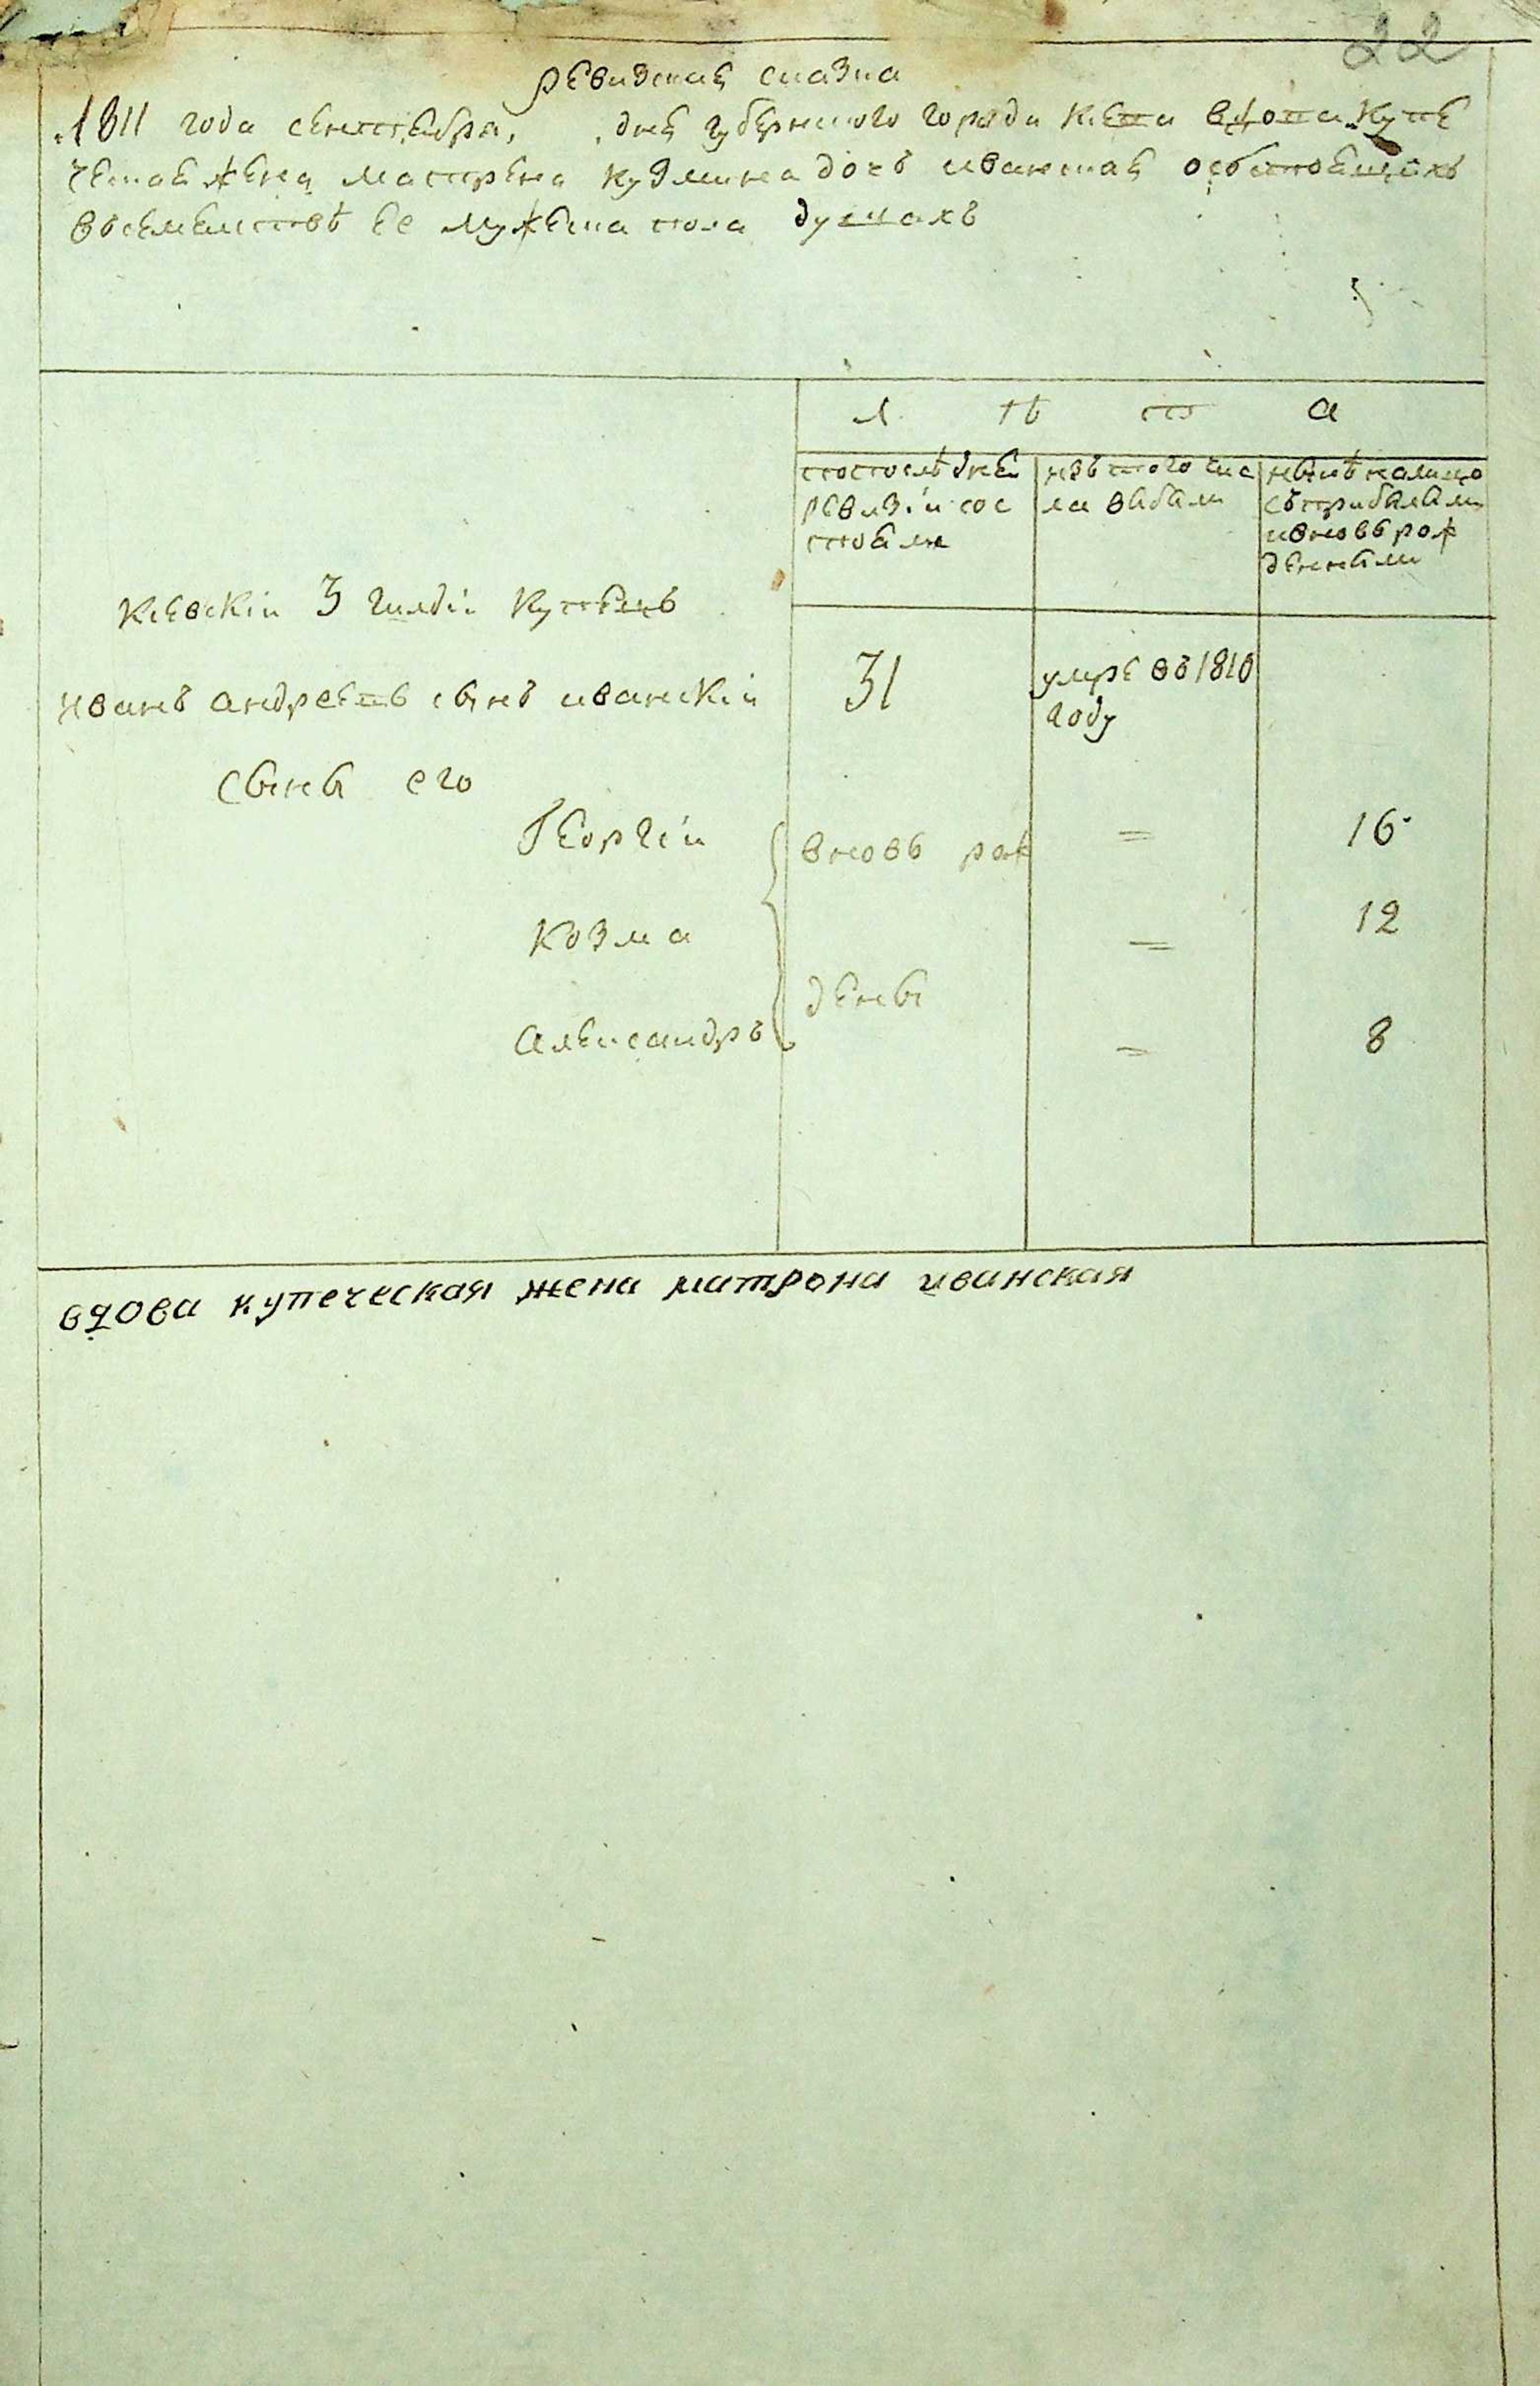 22
ревизская сказка
1811 года сентебря, дня губернского города Киева вдова Купе
ческая жена Матрена Кузмина дочъ иванская осостоящихъ
всемействѣ ее мужеска пола душахъ
л ѣ т а
попослѣдней
ревизіи сос
тояли
изътого чис
ла выбыли
нынѣ налицо
съприбылыми
ивновь рож
денными
Кіевскіи 3 гилдіи Купецъ
иванъ андреевъ сынъ иванскіи
31
умре въ 1810
году
Сыны его
Георгіи
вновь рож
=
16
Козма
=
12
дены
Александръ
=
8
вдова купеческая жена матрона иванская